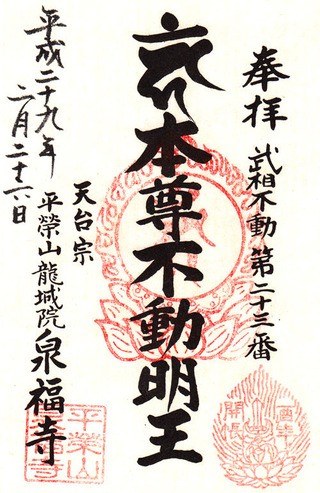 奉拝
武相不動 第二十三番
本尊不動明王
天台宗
平榮山龍城院
泉福寺
平成二十九年
二月二十六日
平榮山
泉福寺
酉年
開帳